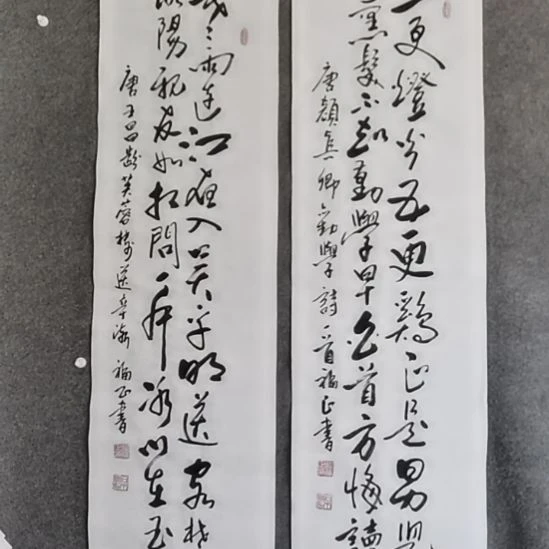 更燈火五更鷄正是男兒
黑髮不知勤學早白首方悔讀
唐顏真卿勸學詩一首福正書
雨連江夜入吳平明送客楚
陽親友如相問一片冰心在玉
唐王昌齡芙蓉樓送辛漸福正書